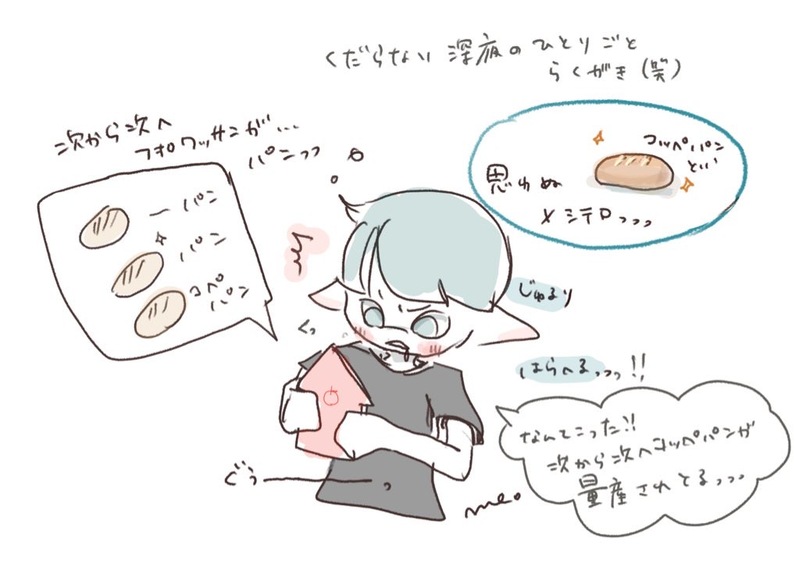 くだらない 深夜の ひとりごと
らくがき(笑)
次から次へ
フォロワッサンが...
パンっっ
〜 パン
パン
コペ
パン
思わぬ
コッペパン
とい
メシテロっっっ
じゅるり
くっ
はらへるっっっ!!
なんてこった!!
次から次へコッペパンが
量産されとるっっっ
ぐぅ
me.